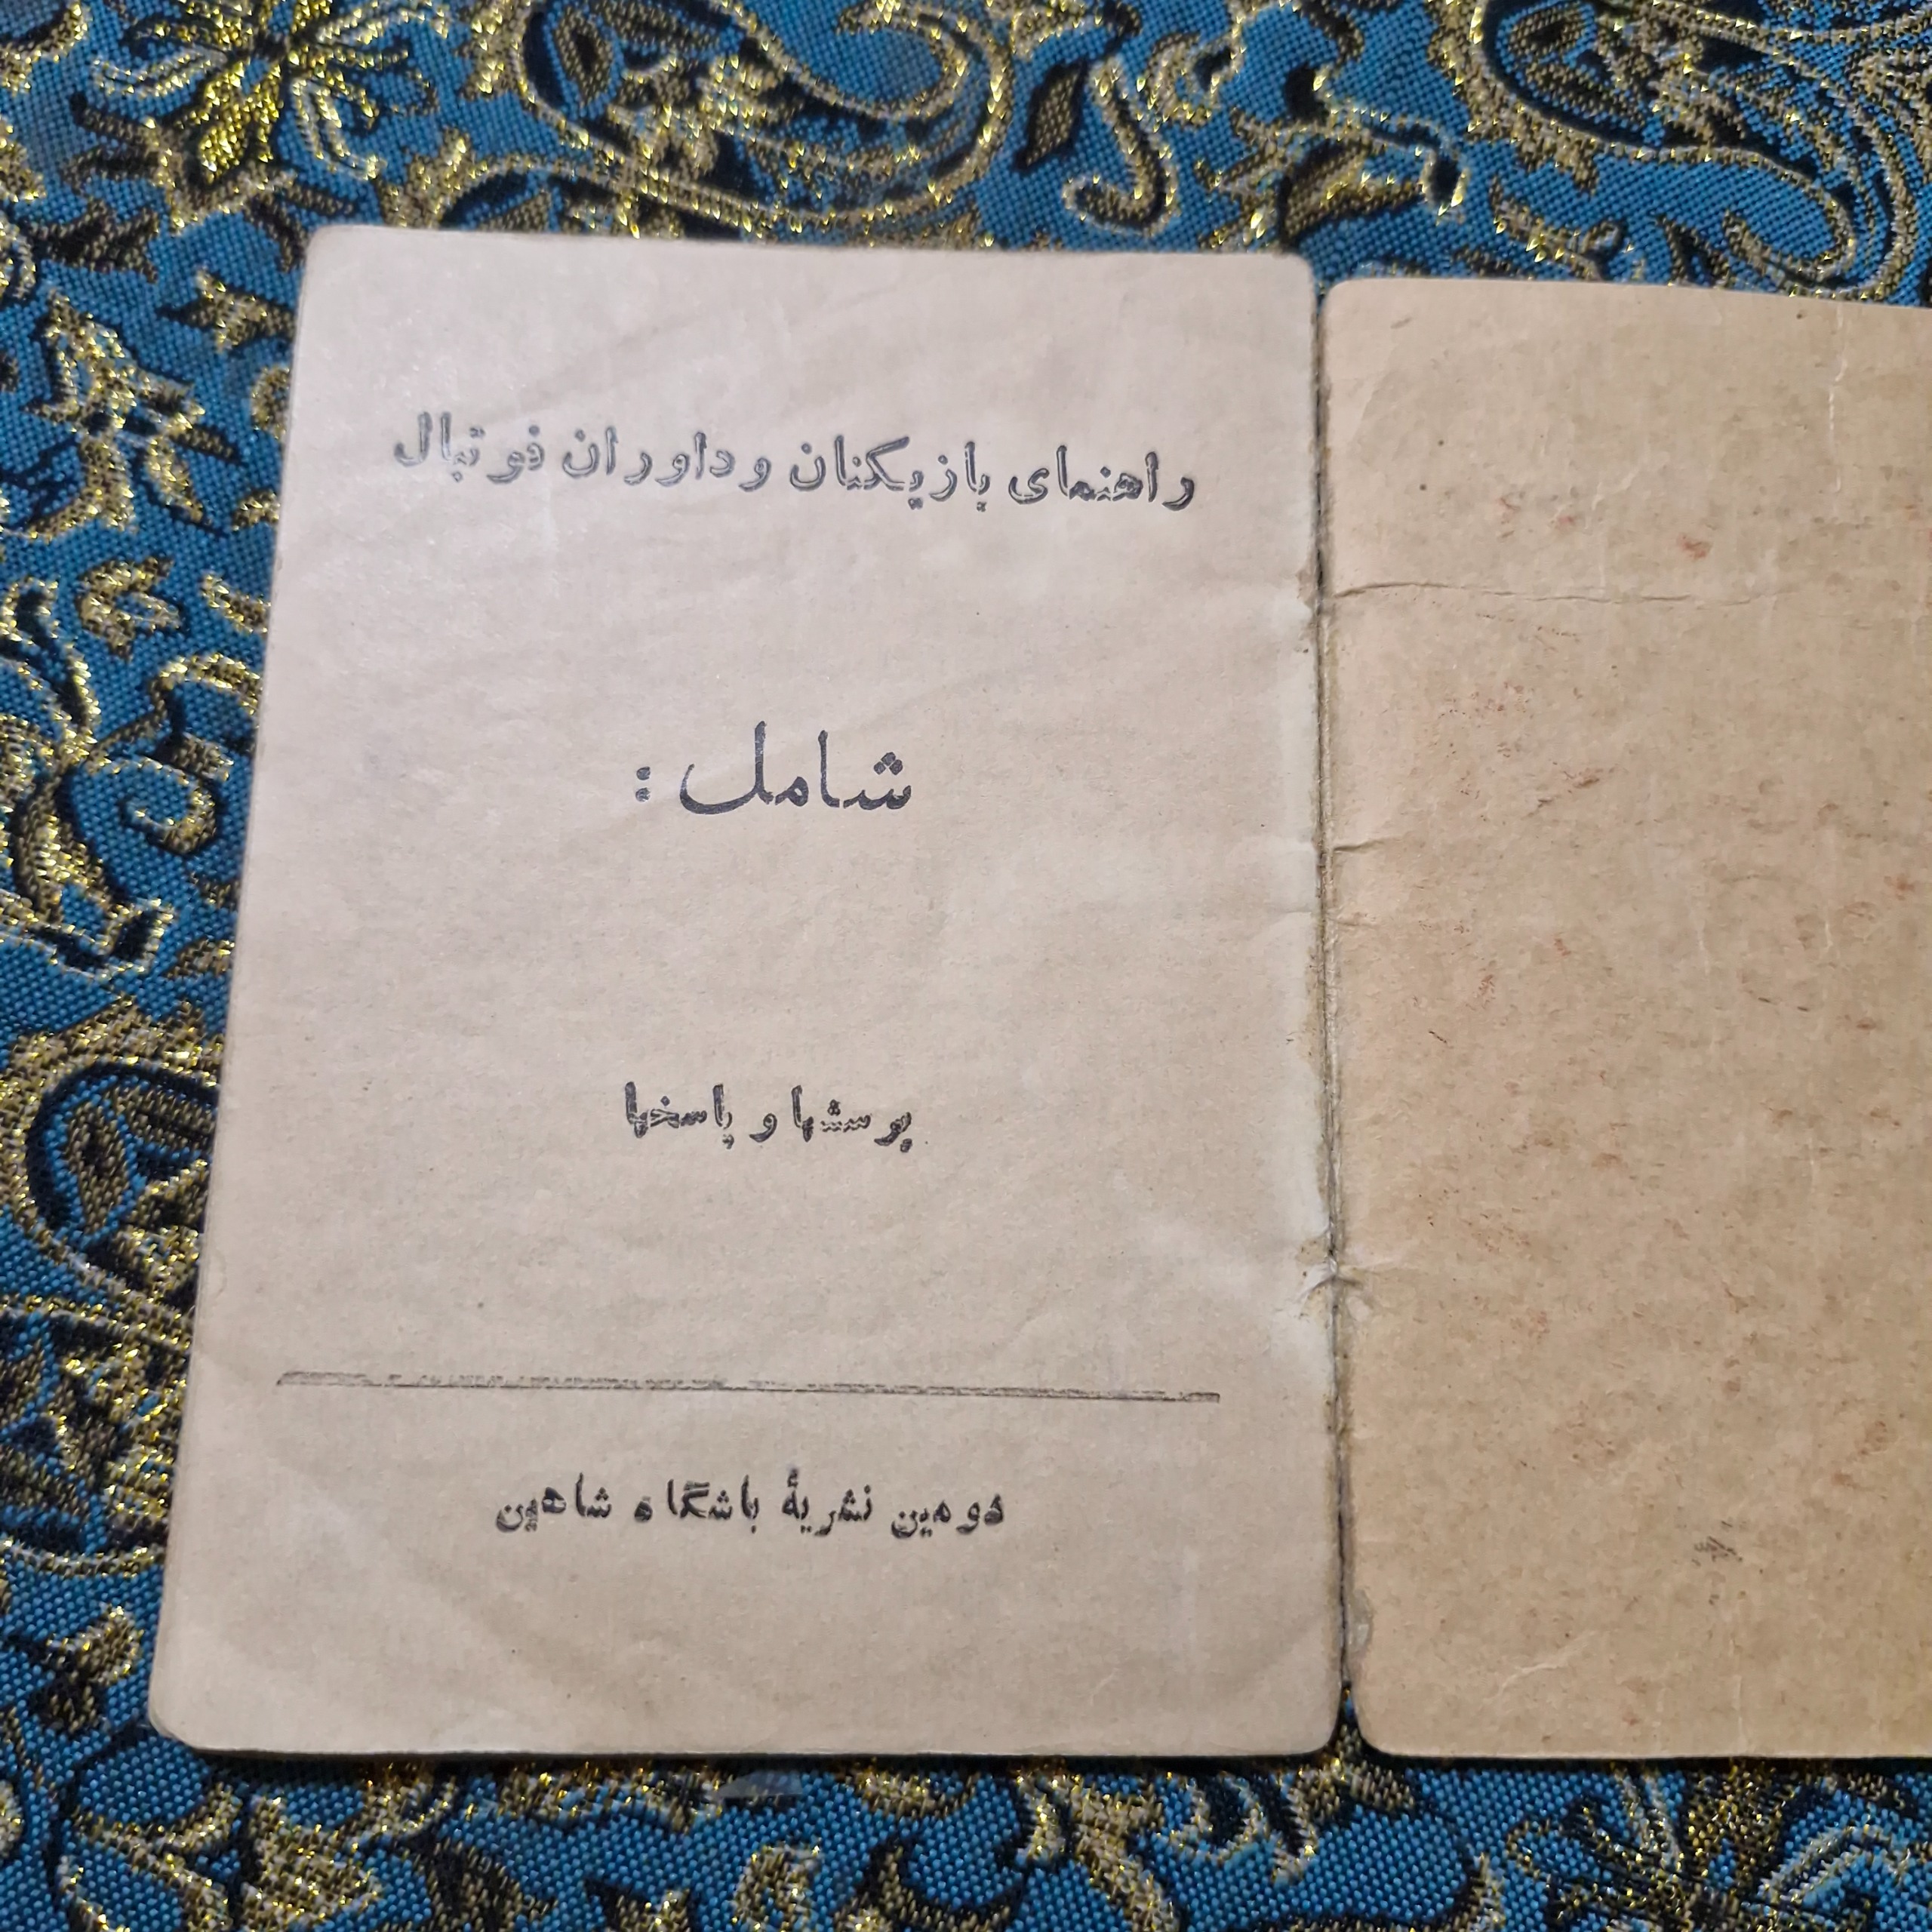 راهنمای بازیکنان و داوران فوتبال
شامل :
پرسشها و پاسخها
دومین نشریهٔ باشگاه شاهین